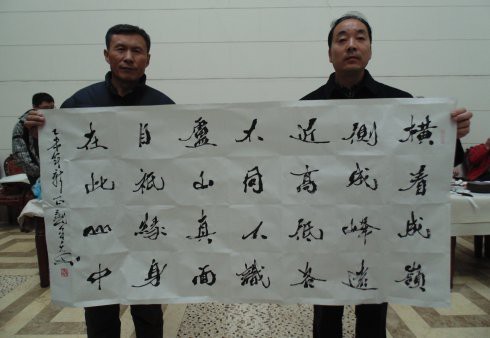 横看成嶺
側成峰遠
近高低各
不同不識
盧山真面
目祇緣身
在此山中